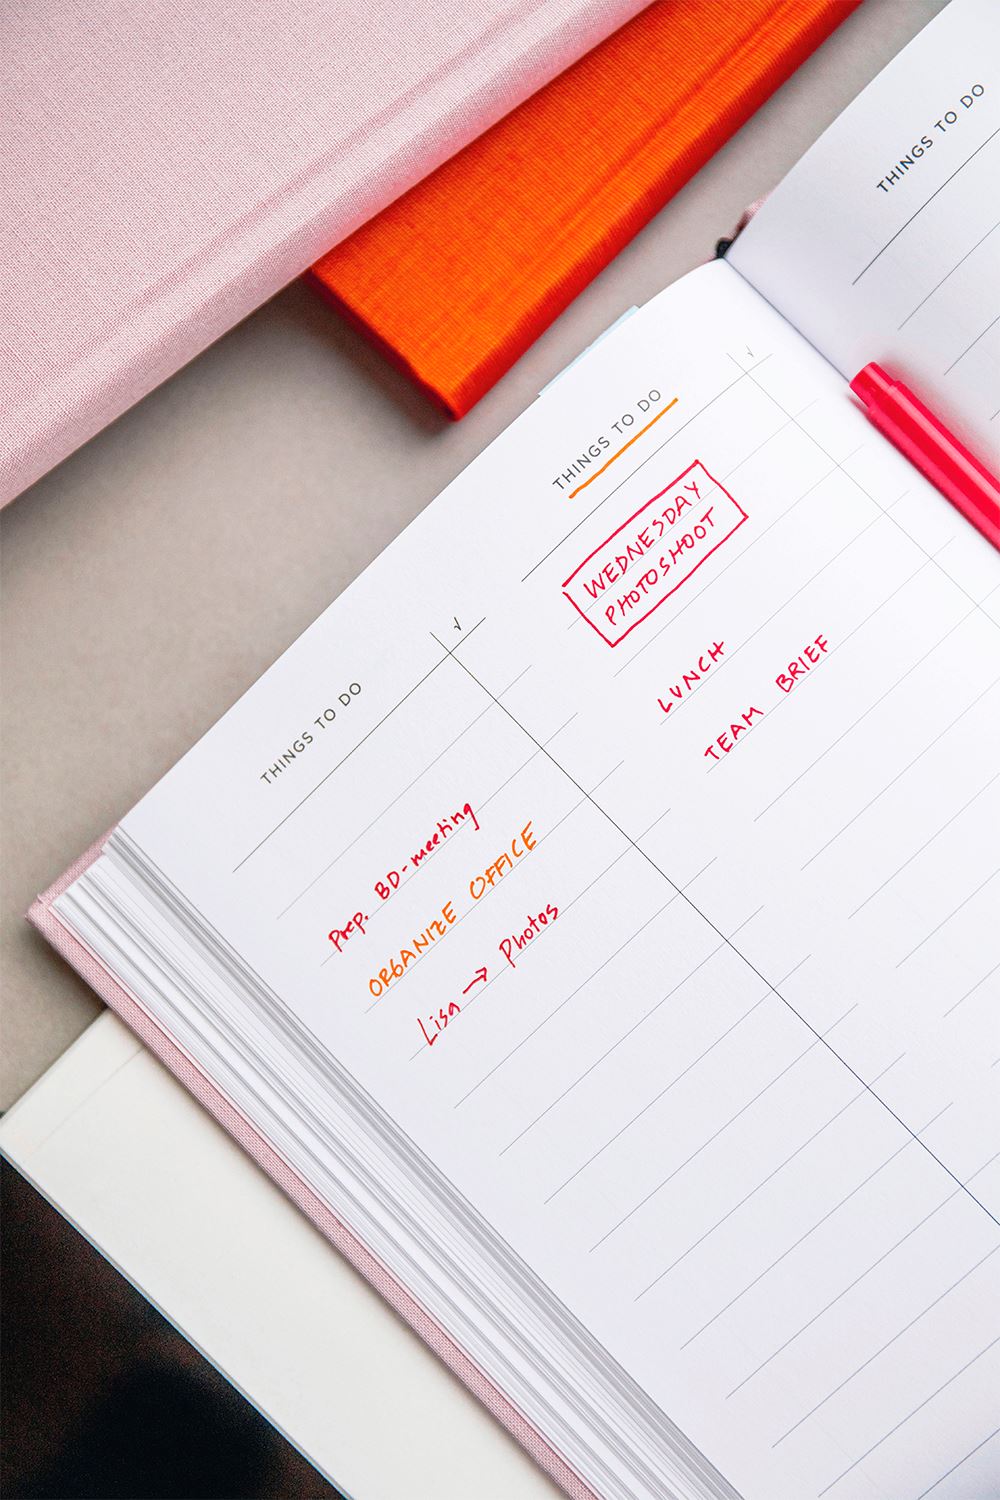 THINGS TO DO
√
Prep. BD-meeting
ORGANIZE OFFICE
Lisa → Photos
THINGS TO DO
√
WEDNESDAY
PHOTOSHOOT
LUNCH
TEAM BRIEF
THINGS TO DO